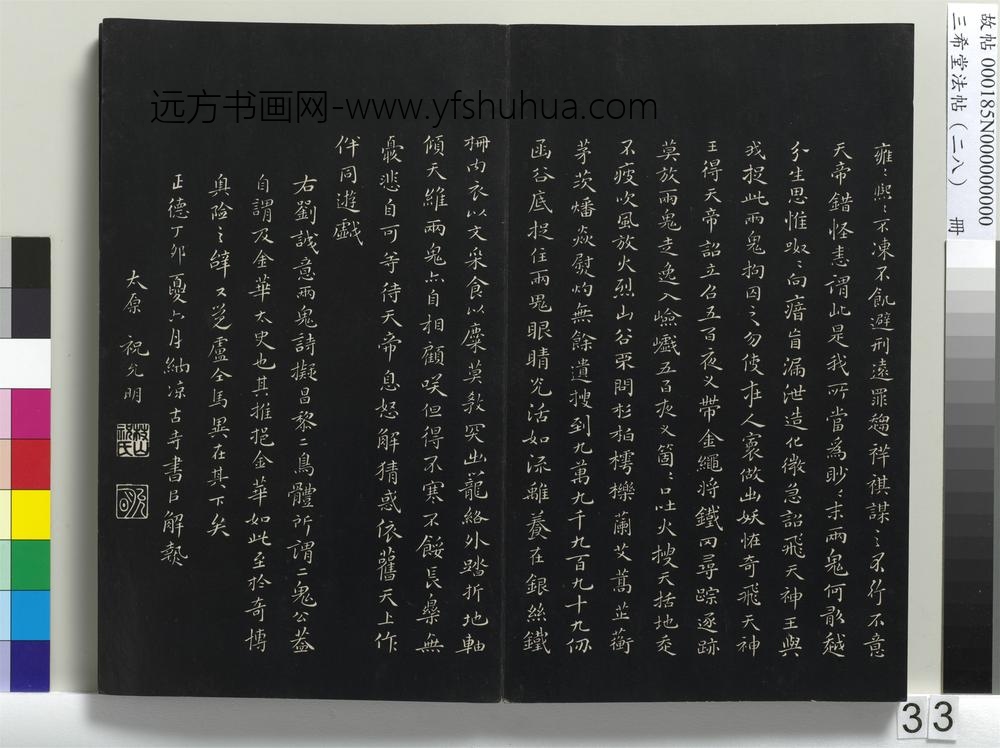 雍〻熙〻不凍不飢避刑遠罪趨祥祺謀〻不行不意
天帝錯怪恚謂此是我所當為眇〻末兩鬼何敢越
分生思惟呶〻向瘖盲漏泄造化微急詔飛天神王與
我捉此兩鬼拘囚之勿使在人寰做出妖怪奇飛天神
王得天帝詔立召五百夜义帶金繩將鐵网尋踪逐跡
莫放兩鬼走逸入嶮巇五百夜义箇〻口吐火搜天括地走
不疲吹風放火烈山谷不問杉柏樗櫟蘭艾蒿芷蘅
茅茨燔焱熨灼無餘遺搜到九萬九千九百九十九仞
函谷底捉住兩鬼眼睛光活如流離養在銀絲鐵
柵內衣以文采食以麋莫教突出籠絡外踏折地軸
傾天維兩鬼亦自相顧咲但得不寒不餒長樂無
憂悲自可等待天帝息怒解猜惑依舊天上作
伴同遊戲
右劉誠意兩鬼詩擬昌黎二鳥體所謂二鬼公蓋
自謂及金華太史也其推挹金華如此至於奇博
奧險之辭又覺盧仝馬異在其下矣
正德丁卯夏六月納凉古寺書以解熱
太原 祝允明
枝山
祝氏
远方书画网-www.yfshuhua.com
故帖 000185N000000000
三希堂法帖（二八） 冊
33